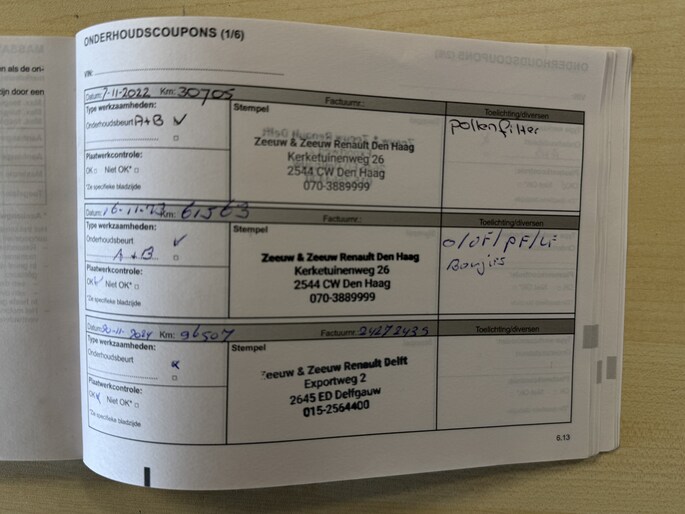 en als de ori-
ijn door een
ONDERHOUDSCOUPONS (1/6)
VIN:
Datum: 7-11-2022 Km: 30705 Factuurnr.: Toelichting/diversen
Type werkzaamheden:
Onderhoudsbeurt A+B
Plaatwerkcontrole:
OK Niet OK*
*Zie specifieke bladzijde
Stempel
Zeeuw & Zeeuw Renault Den Haag
Kerketuinenweg 26
2544 CW Den Haag
070-3889999
pollenfilter
Datum: 16-11-23 Km: 61563 Factuurnr.: Toelichting/diversen
Type werkzaamheden:
Onderhoudsbeurt
A+B
Plaatwerkcontrole:
OK Niet OK*
*Zie specifieke bladzijde
Stempel
Zeeuw & Zeeuw Renault Den Haag
Kerketuinenweg 26
2544 CW Den Haag
070-3889999
O/OF/PF/LF
Bougies
Datum: 20-11-2024 Km: 96507 Factuurnr.: 24272435 Toelichting/diversen
Type werkzaamheden:
Onderhoudsbeurt
Plaatwerkcontrole:
OK Niet OK*
*Zie specifieke bladzijde
Stempel
Zeeuw & Zeeuw Renault Delft
Exportweg 2
2645 ED Delfgauw
015-2564400
6.13